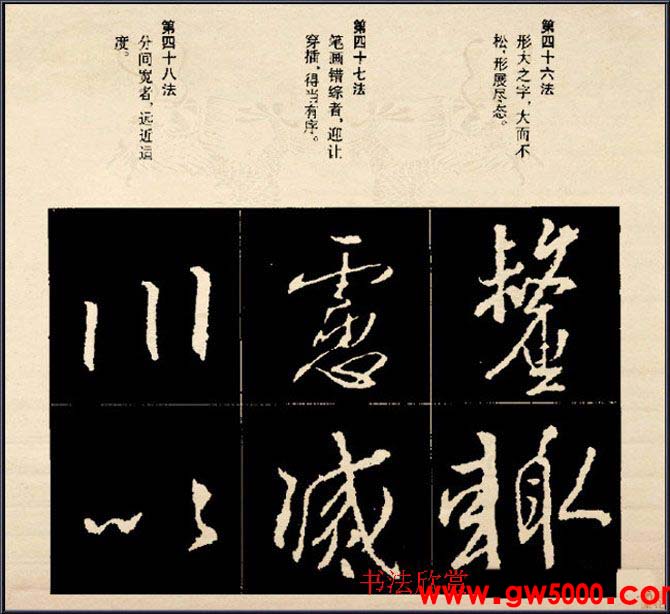 第四十六法
形大之字，大而不
松，形展尽态。
第四十七法
笔画错综者，迎让
穿插，得当有序。
第四十八法
分间宽者，远近适
度。
川
以
书法欣赏
www.gw5000.com